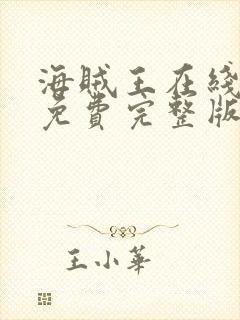 海賊王在綫
免費完整版
王小華